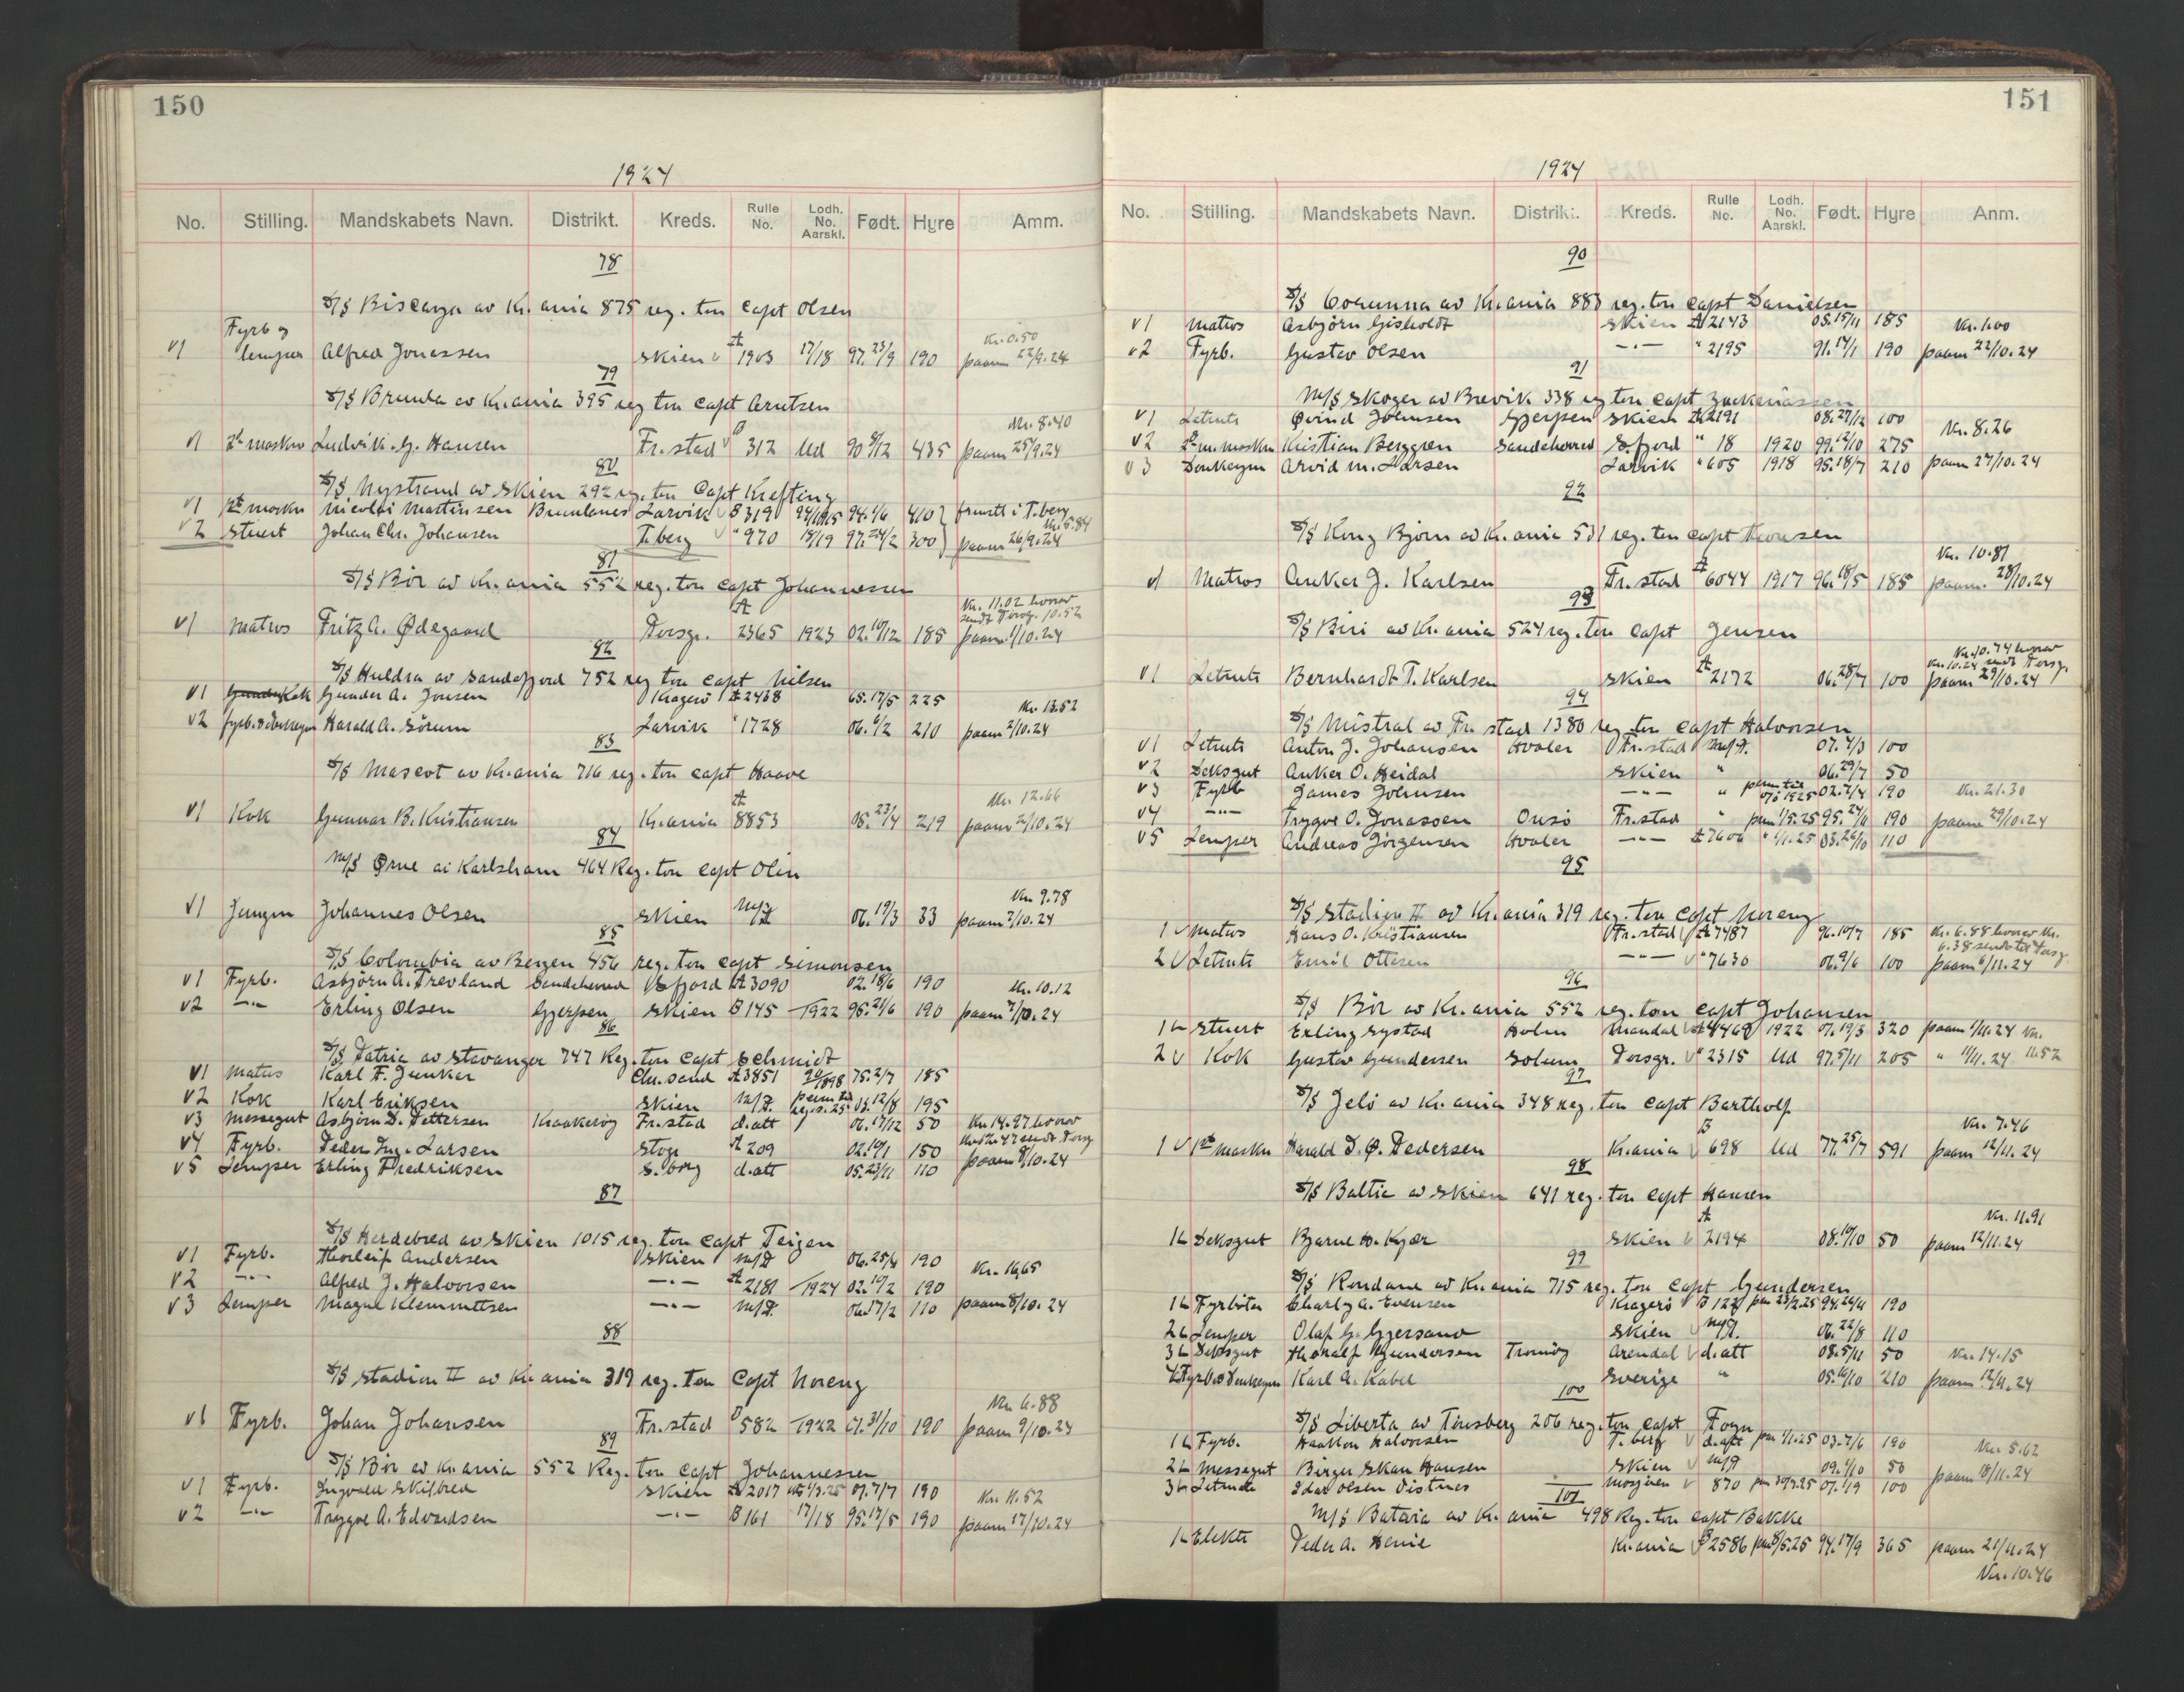 150
1924
No. Stilling. Mandskabets Navn. Distrikt. Kreds. Rulle No. Lodh. No. Aarskl. Født. Hyre Amm.
78
S/S Biscaya av Kr.ania 875 reg. ton Capt Olsen
Fyrb og Kr. 0.50
v1 lemper Alfred Jonassen Skien v A 1903 17/18 97.23/9 190 paam 22/9.24
79
S/S Brunla av Kr.ania 395 reg ton Capt Arntsen
Kr. 8.40
v1 2d maskn Ludvik G. Hansen Fr.stad v B 312 Ud 90 8/12 435 paam 25/9.24
80
S/S Nystrand av Skien 292 reg. ton Capt Krefting
v1 1ste maskn Nicolai Martinsen Brunlanes Larvik v B 319 94/1915 94.1/6 410 frmstt i T.berg
v2 Stuert Johan Chr. Johansen T.berg v " 970 18/19 97.24/2 300 paam 26/9.24 Kr. 5.84
81
S/S Bör av Kr.ania 552 reg. ton Capt Johannessen
Kr. 11.02 hvorav
sendt Porsg. 10.52
v1 Matros Fritz A. Ødegaard Porsgr. A 2365 1923 02.10/12 185 paam 1/10.24
82
S/S Huldra av Sandefjord 752 reg ton Capt Nilsen
v1 Kok Gunder A. Jonsen Kragerö A 2468 65.17/5 225 Kr. 13.52
v2 fyrb. & Donkeym Harald A. Sörum Larvik " 1728 06.6/2 210 paam 2/10.24
83
S/S Mascot av Kr.ania 716 reg. ton Capt Haave
Kr. 12.66
v1 Kok Gunnar B. Kristiansen Kr.ania A 8853 05.23/4 219 paam 2/10.24
84
M/S Ørne av Karlshamn 464 Reg. ton Capt Olin
Kr. 9.78
v1 Jungm Johannes Olsen Skien m/A 06.19/3 33 paam 7/10.24
85
S/S Colombia av Bergen 456 reg. ton Capt Simonsen
v1 Fyrb. Asbjörn A. Trevland Sandeherred S.fjord A 3090 02.18/6 190 Kr. 10.12
v2 -"- Erling Olsen Gjerpen Skien B 145 1922 95.21/6 190 paam 7/10.24
86
S/S Patria av Stavanger 747 Reg. ton Capt Schmidt
v1 Matros Karl F. Junker Chr.sand A 3851 90/1898 75.2/7 185
v2 Kok Karl Eriksen Skien m/A 03.12/8 195
v3 Messegut Asbjörn D. Pettersen Kraakeröy Fr.stad d.att 06.17/12 50 Kr. 14.97 hvorav
v4 Fyrb. Peder Ing. Larsen A 209 02.10/1 150 Kr. 12.47 sendt Porsg
v5 Lemper Erling Fredriksen S.borg d.att 05.23/11 110 paam 8/10.24
87
S/S Herdebred av Skien 1015 reg. ton Capt Teigen
v1 Fyrb. Thorleif Andersen Skien m/A 06.25/4 190
v2 -"- Alfred J. Halvorsen -"- A 2181 1924 02.19/2 190 Kr. 16,65
v3 Lemper Magne Klemmetsen -"- m/A 06.17/2 110 paam 8/10.24
88
S/S Stadion II av Kr.ania 319 reg. ton Capt Noreng
Kr. 6.88
v1 Fyrb. Johan Johansen Fr.stad B 582 1922 01.31/10 190 paam 9/10.24
89
S/S Bör av Kr.ania 552 Reg. ton Capt Johannessen
v1 Fyrb. Ingvald Skilbred Skien A 2017 07.7/7 190 Kr. 11.52
v2 -"- Trygve A. Edvardsen -"- B 161 17/18 95.17/5 190 paam 17/10.24
151
1924
No. Stilling. Mandskabets Navn. Distrikt. Kreds. Rulle No. Lodh. No. Aarskl. Født. Hyre Anm.
90
S/S Corunna av Kr.ania 883 reg. ton Capt Danielsen
v1 Matros Asbjörn Gisholdt Skien A 2143 05.15/11 185 Kr. 1.00
v2 Fyrb. Gustav Olsen -"- " 2195 91.14/1 190 paam 22/10.24
91
M/S Skoger av Brevik 338 reg ton Capt Zackariassen
v1 Letmts Øvind Johnsen Gjerpen Skien A 2191 08.27/12 100
v2 2d m. maskn Kristian Berggren Sandeherred S.fjord " 18 1920 99.12/10 275 Kr. 8.26
v3 Donkeym Arvid M. Larsen Larvik " 605 1918 95.18/7 210 paam 27/10.24
92
S/S Kong Bjørn av Kr.ania 531 reg. ton Capt Thoresen
Kr. 10.87
v1 Matros Ankar J. Karlsen Fr.stad A 6044 1917 96.18/5 185 paam. 28/10.24
93
S/S Biri av Kr.ania 524 reg. ton Capt Jensen
Kr. 10.74 hvorav
Kr. 10.24 sendt Porsg.
v1 Letmts Bernhardt T. Karlsen Skien A 2172 06.28/7 100 paam 29/10.24
94
S/S Mistral av Fr.stad 1380 reg. ton Capt Halvorsen
v1 Letmts Anton J. Johansen Hvaler Fr.stad m/A. 07.4/3 100
v2 Deksgut Anker O. Heidal Skien " 06.29/7 50
v3 Fyrb James Johnsen -"- " 02.2/4 190 Kr. 21.30
v4 -"- Trygve O. Jonassen Onsö Fr.stad " perm 1/5.25 95.24/6 190 paam 29/10.24
v5 Lemper Andreas Jörgensen Hvaler -"- A 7606 " 1/1.25 03.26/10 110
95
S/S Stadion II av Kr.ania 319 reg. ton Capt Noreng
1 v Matros Hans O. Kristiansen Fr.stad A 7487 96.10/7 185 Kr. 6.88 hvorav Kr.
6.38 sendt til Porsg
2 v Letmts Emil Ottesen -"- v " 7630 06.9/6 100 paam 6/11.24
96
S/S Bör av Kr.ania 552 reg. ton Capt Johansen
1 v Stuert Erling Systad Holm Mandal 1922 01.19/3 320 paam 11/11.24 Kr.
2 v Kok Gustav Gundersen Solum Porsgr. v " 2315 Ud 97.5/11 205 " 11/11.24 11.52
97
S/S Jelö av Kr.ania 348 reg. ton Capt Bartholf
Kr. 7.46
1 v 1ste maskn Harald D. Ø. Pedersen Kr.ania v B 698 Ud 77.25/7 591 paam 12/11.24
98
S/S Baltic av Skien 641 reg. ton Capt Hansen
Kr. 11.91
1 v Deksgut Bjarne H. Kjær Skien v A 2194 08.10/10 50 paam 12/11.24
99
S/S Rondane av Kr.ania 715 reg. ton Capt Gundersen
1 v Fyrböter Charly A. Evensen Kragerö B 122 perm 23/2.25 94.26/11 190
2 v Lemper Olaf G. Gjersand Skien v m/A. 06.22/8 110
3 v Deksgut Thoralf Gundersen Tromöy Arendal v d.att 08.5/11 50 Kr. 14.15
4 v Fyrb & Donkeym Karl A. Kabel Sverige " 05.16/10 210 paam 12/11.24
100
S/S Liberta av Tönsberg 206 reg. ton Capt Foyn
1 v Fyrb. Haakon Halvorsen T.berg v d.att perm 1/1.25 03.7/6 190 Kr. 5.62
2 v Messegut Birger Skau Hansen Skien v m/A 09.1/10 50
3 v Letmts Idar Olsen Mosjöen v 870 07.1/9 100 paam 18/11.24
101
M/S Batavia av Kr.ania 498 Reg. ton Capt Bakke
1 v Elektr Peder A. Henie Kr.ania v B 2586 perm 8/5.25 94.17/9 365 paam 21/11.24
Kr. 10.46